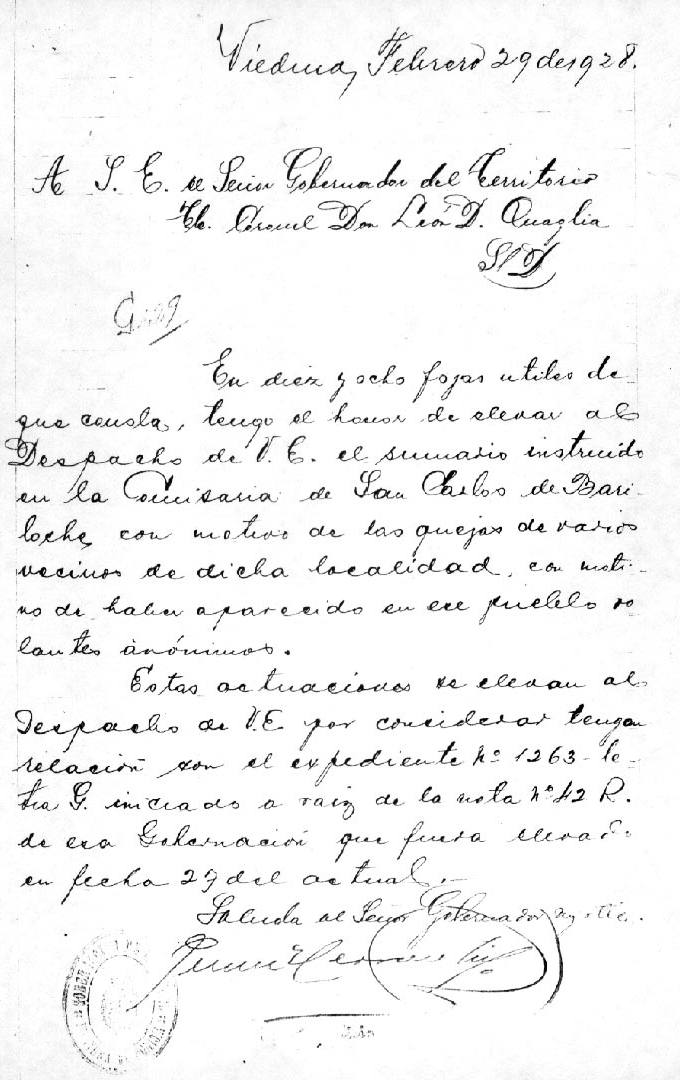 Viedma, Febrero 29 de 1928.
A S. E. el Señor Gobernador del Territorio
Coronel Don León D. Quaglia
S/D
En diez y ocho fojas utiles de
que consta, tengo el honor de elevar al
Despacho de V. E. el sumario instruido
en la Comisaria de San Carlos de Bari-
loche, con motivo de las quejas de varios
vecinos de dicha localidad, con moti-
vo de haber aparecido en ese pueblo vo-
lantes anónimos.
Estas actuaciones se elevan al
Despacho de V.E. por considerar tengan
relación con el expediente Nº 1263-le-
tra G. iniciado a raiz de la nota Nº 42 R.
de esa Gobernación que fuera elevado
en fecha 27 del actual.-
Saluda al Señor Gobernador